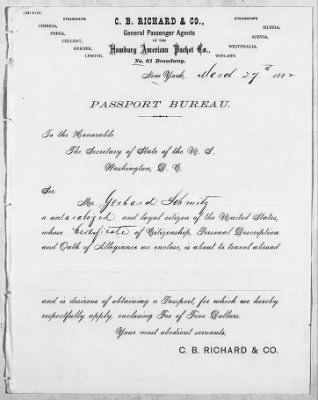 STEAMSHIPS
CIMBRIA,
FRISIA,
GELLERT,
HERDER,
LESSING,
C. B. RICHARD & CO.,
General Passenger Agents
OF THE
Hamburg American Packet Co.,
No. 61 Broadway.
STEAMSHIPS
SILESIA,
SUEVIA,
WESTPHALIA,
WIELAND.
New York, March 27th 188
PASSPORT BUREAU.
To the Honorable
The Secretary of State of the U. S.
Washington, D. C.
Sir
Mr. Gerhard Schmitz
a naturalized and loyal citizen of the United States,
whose Certificate of Citizenship, Personal Description
and Oath of Allegiance we enclose, is about to travel abroad
and is desirous of obtaining a Passport, for which we hereby
respectfully apply, enclosing Fee of Five Dollars.
Your most obedient servants,
C. B. RICHARD & CO.